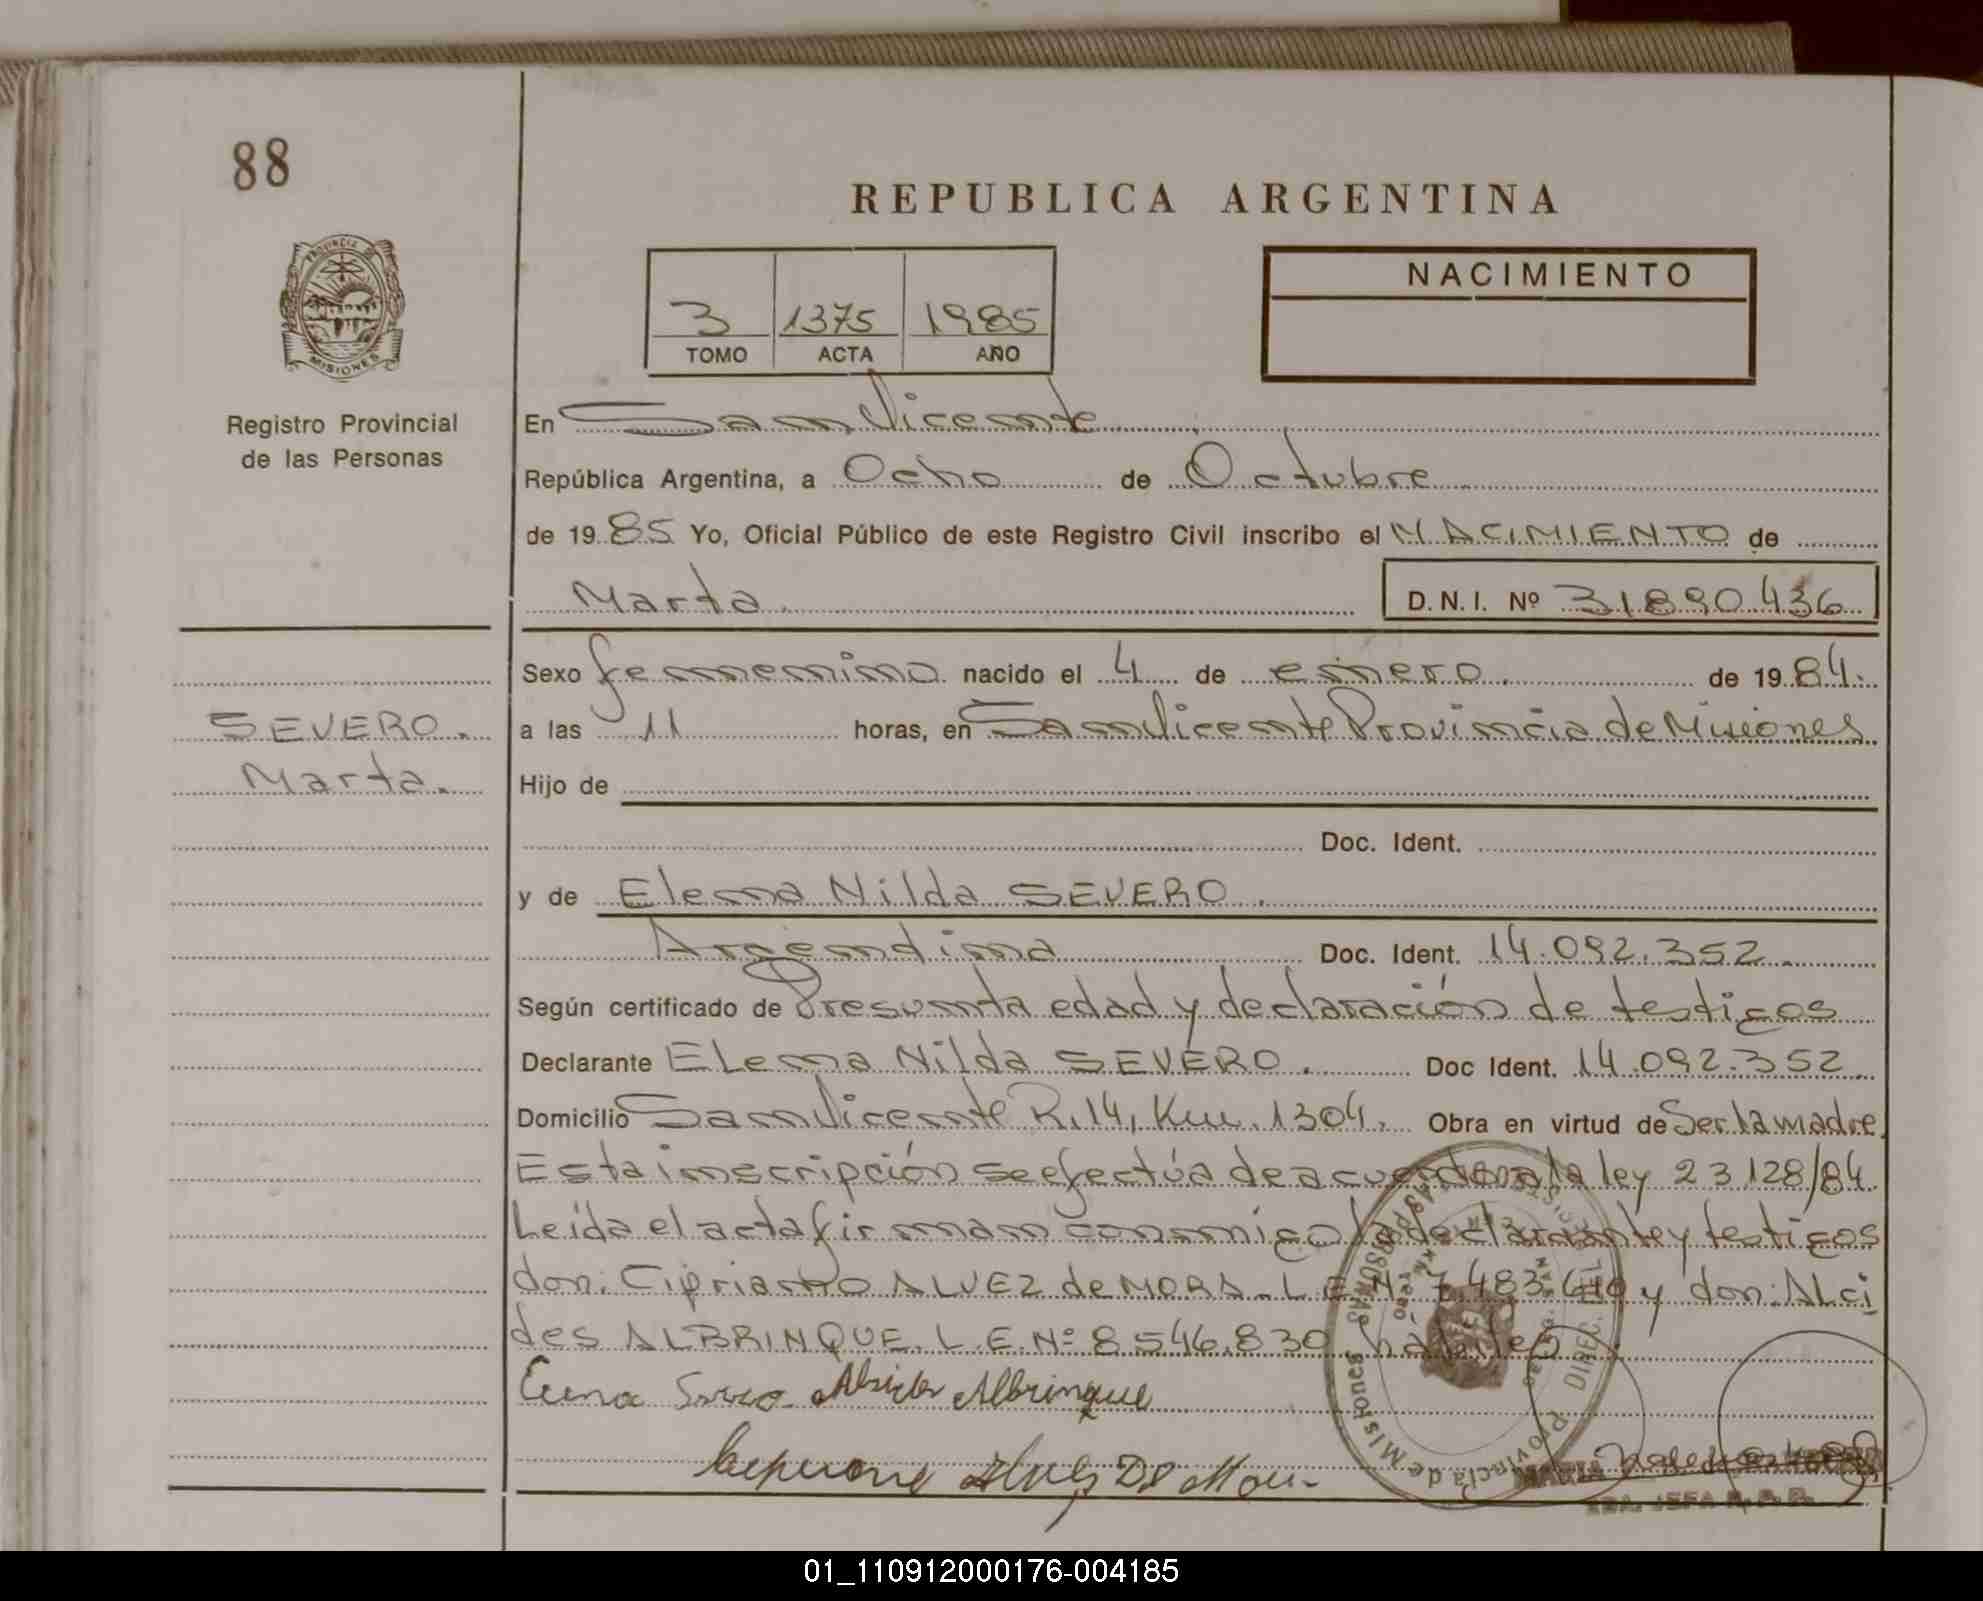 88
REPUBLICA ARGENTINA
PROVINCIA DE MISIONES
Registro Provincial
de las Personas
3 1375 1985
TOMO ACTA AÑO
NACIMIENTO
En San Vicente
República Argentina, a Ocho de Octubre
de 19 85 Yo, Oficial Público de este Registro Civil inscribo el NACIMIENTO de
Marta. D.N.I. Nº 31890436
SEVERO.
Marta.
Sexo femenino nacido el 4 de enero. de 19 84.
a las 11 horas, en San Vicente Provincia de Misiones
Hijo de
Doc. Ident.
y de Elena Nilda SEVERO.
Argentina Doc. Ident. 14.092.352.
Según certificado de Presunta edad y declaración de testigos
Declarante Elena Nilda SEVERO. Doc Ident. 14.092.352.
Domicilio San Vicente R.14, Km. 1304. Obra en virtud de Ser la madre.
Esta inscripción se efectúa de acuerdo a la ley 23.128/84.
Leída el acta firman conmigo la declarante y testigos
don: Cipriano ALVEZ de MORA. L.E.N. 7.483.610 y don: ALci
des ALBRINQUE. L.E.Nº 8546.830 hábiles
Elena Severo Alcides Albrinque
Alves De
Provincia de Misiones
DIREC.
SRA. JEFA R. P. P.
01_110912000176-004185